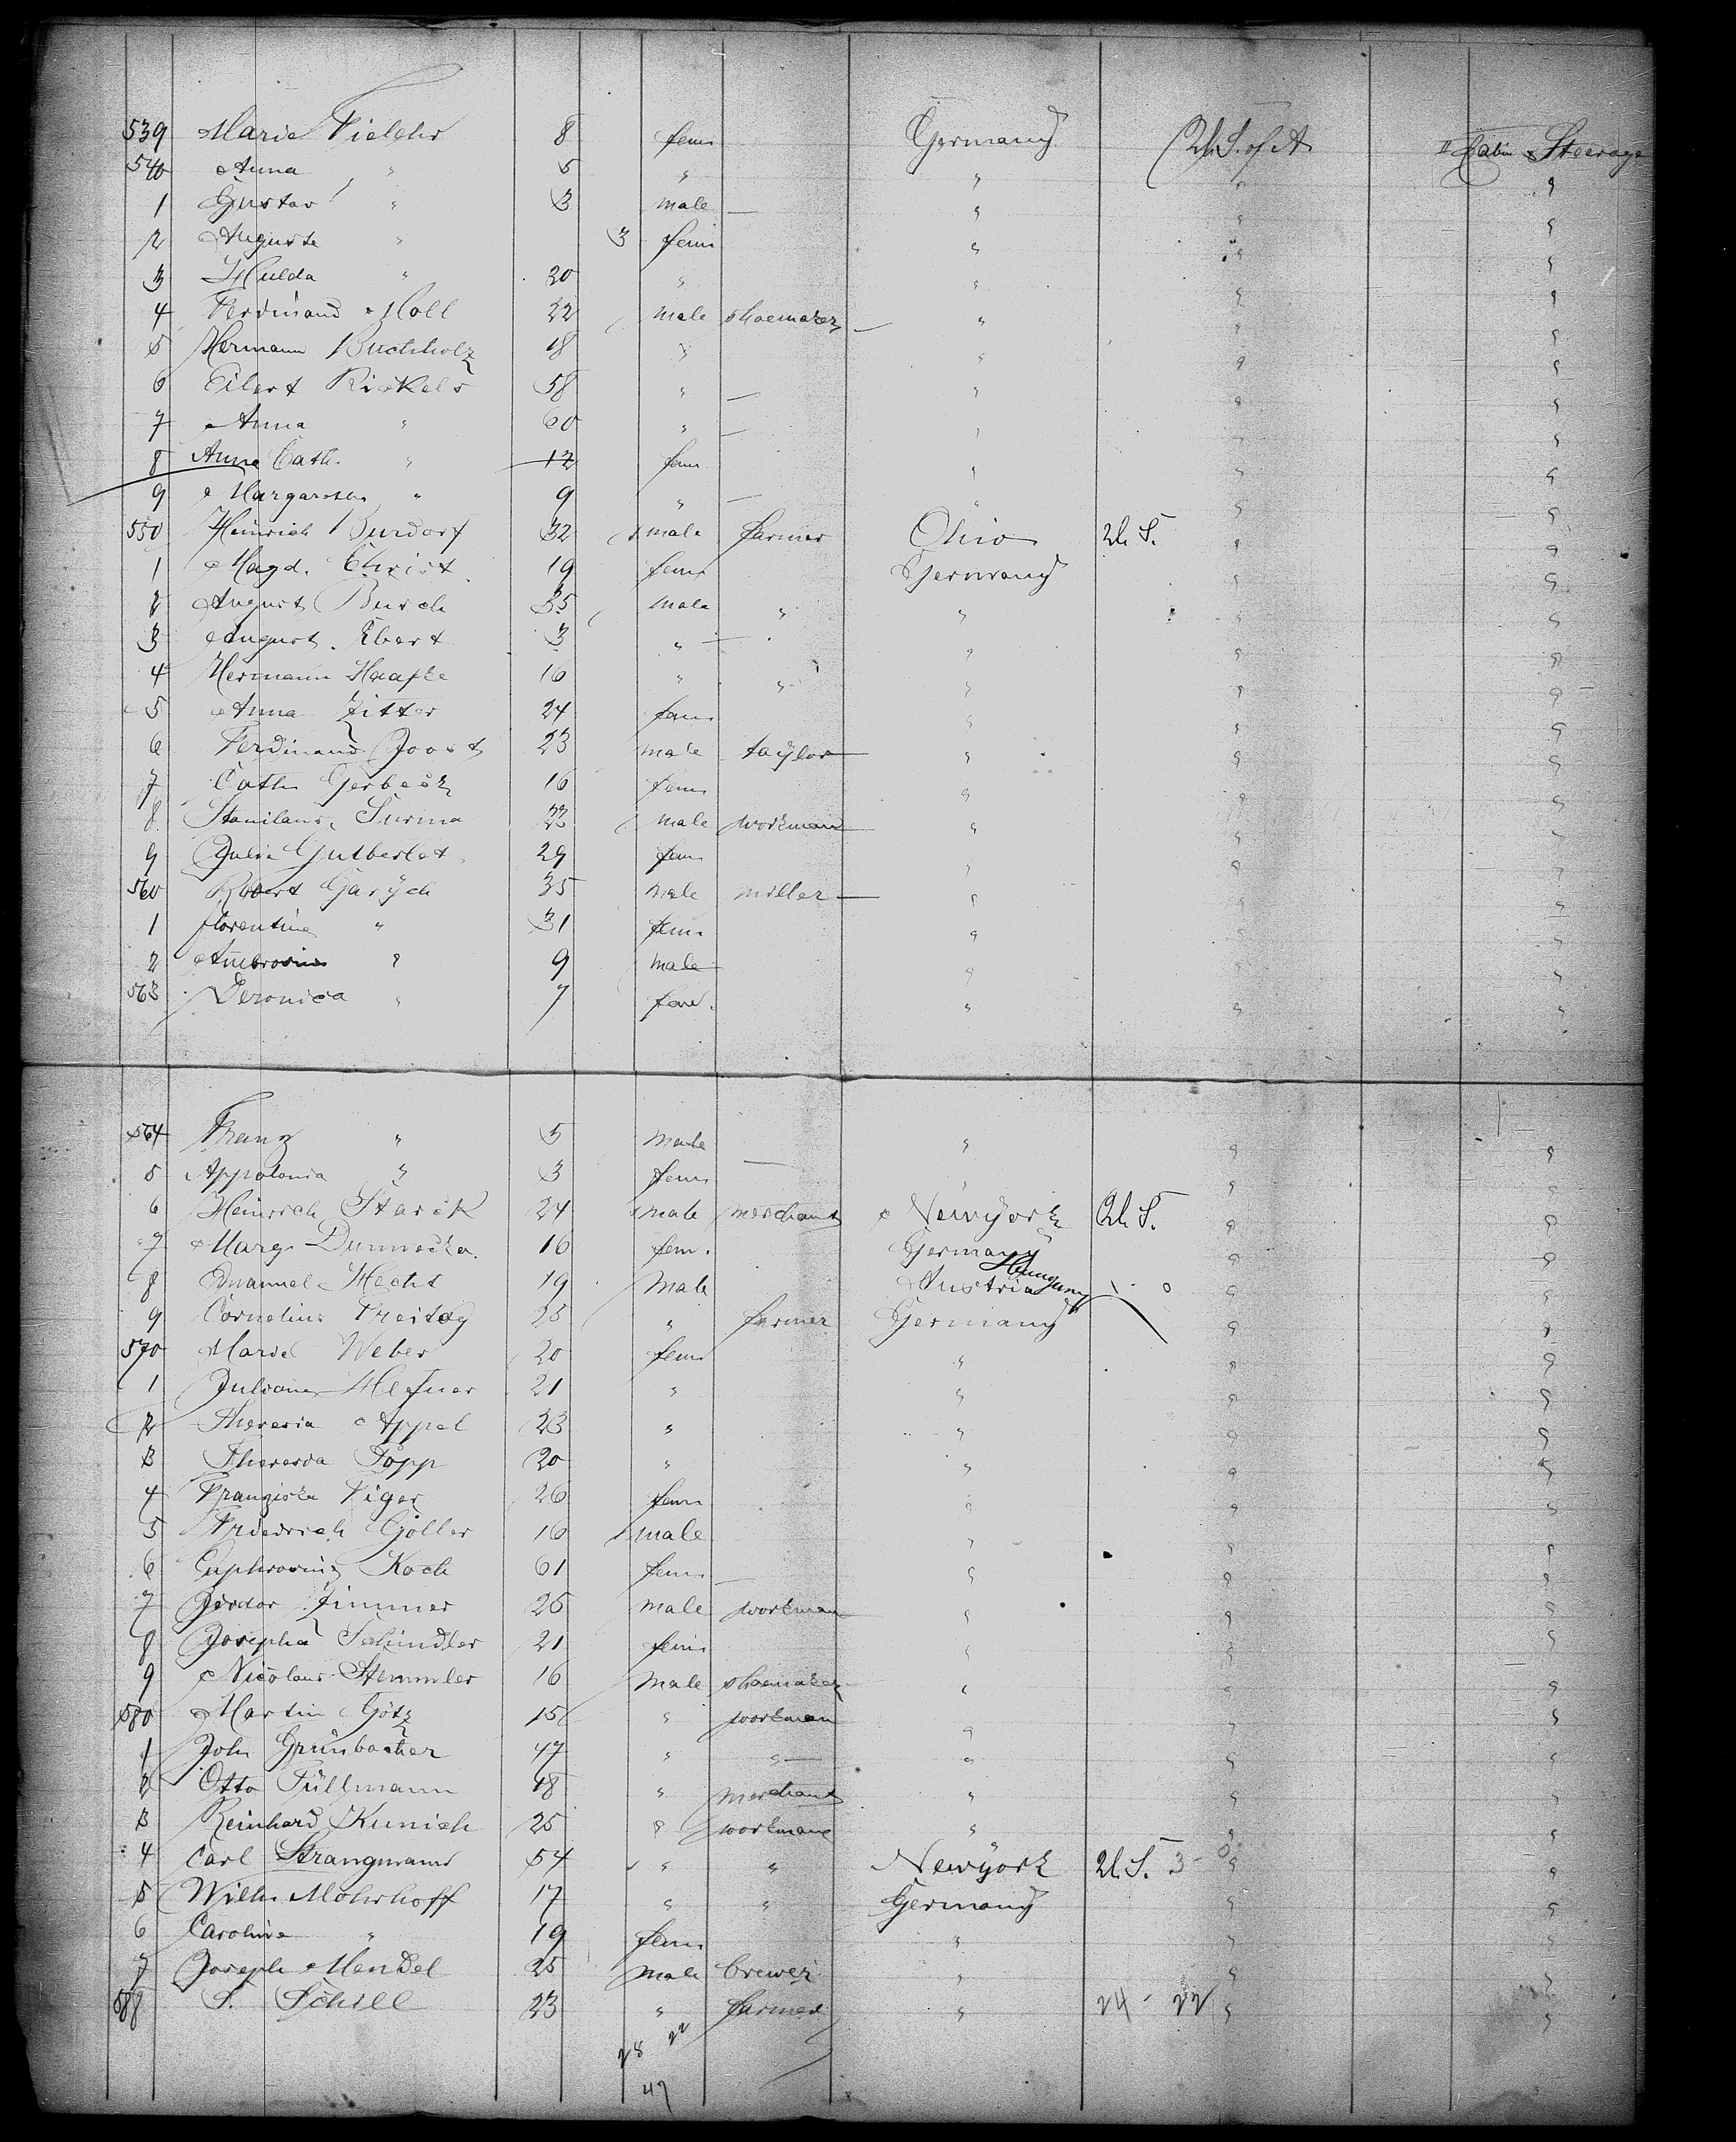 539 Marie 8 fem Germany U.S. of A II Cabin & Steerage
540 Anna " 5 " " " "
1 Gustav " 3 male — " " "
2 Auguste " 3 fem " " "
3 Hulda " 20 " " " "
4 Ferdinand Moll 22 male shoemaker — " " "
5 Hermann Buchholz 18 " " " "
6 Eilert Rickels 58 " — " " "
7 Anna " 60 " — " " "
8 Anna Cath. " 12 fem " " "
9 Margarethe " 9 " — " " "
550 Heinrich Burdorf 32 male farmer Ohio U.S. " "
1 Magd. Christ 19 fem Germany " "
2 August Busch 35 male " " " "
3 August Ebert 3 " — " " "
4 Hermann Haafke 16 " " " " "
5 Anna Zitter 24 fem " " "
6 Ferdinand Joost 23 male taylor — " " "
7 Cath Gerbeck 16 fem " " "
8 Stanilaus Surma 23 male workman " " "
9 Julie Gutberlet 29 fem " " "
560 Robert Garych 35 male miller — " " "
1 florentine " 31 fem " " "
2 Ambrosius " 9 male " " "
563 Veronica " 7 fem. " " "
564 Franz " 5 male " " "
5 Appolonia " 3 fem — " " "
6 Heinrich Starck 24 male merchant Newyork U.S. " "
7 Marg. 16 fem. Germany " "
8 Emanuel Hecht 19 male Austria Hungary " "
9 Cornelius Freitag 25 " farmer Germany " "
570 Marie Weber 20 fem " " "
1 Juliane Hefner 21 " " " "
2 Theresia Appel 23 " " " "
3 Theresia Popp 20 " " " "
4 Franziska Figer 26 fem " " "
5 Friedrich Göller 16 male " " "
6 Euphrosine Koch 61 fem — " " "
7 Isidor Zimmer 25 male workman " " "
8 Josepha Schindler 21 fem " " "
9 Nicolaus Stemmler 16 male shoemaker " " "
580 Martin Götz 15 " workman " " "
1 Joh Grünbacher 47 " " — " " "
2 Otto Tüllmann 18 " merchant " " "
3 Reinhard Kunich 25 " workman " " "
4 Carl Strangmann 54 " " Newyork U.S. 3 - " "
5 Wilh Mohrhoff 17 " " Germany " "
6 Caroline " 19 fem " " "
7 Joseph Mendel 25 male brewer " " "
588 S. Schill 23 " farmer " 24 - 22 " "
28 22
47